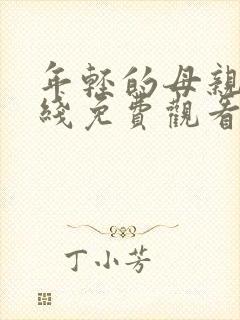 年轻的母親
綫免費觀看
丁小芳